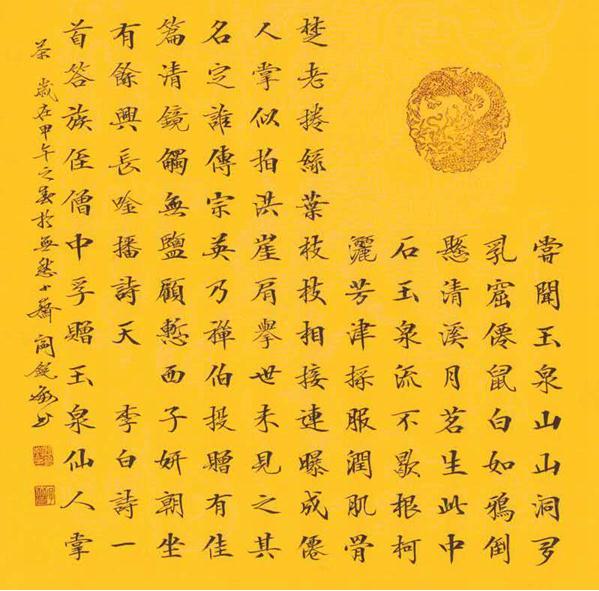 嘗聞玉泉山山洞多
乳窟僊鼠白如鴉倒
懸清溪月茗生此中
石玉泉流不歇根柯
灑芳津採服潤肌骨
楚老捲綠葉枝枝相接連曝成僊
人掌似拍洪崖肩舉世未見之其
名定誰傳宗英乃禅伯投贈有佳
篇清鏡觸無鹽顧慙西子妍朝坐
有餘興長唫播詩天 李白詩一
首答族侄僧中孚贈玉泉仙人掌
茶 歲在甲午之春於無愁小齋